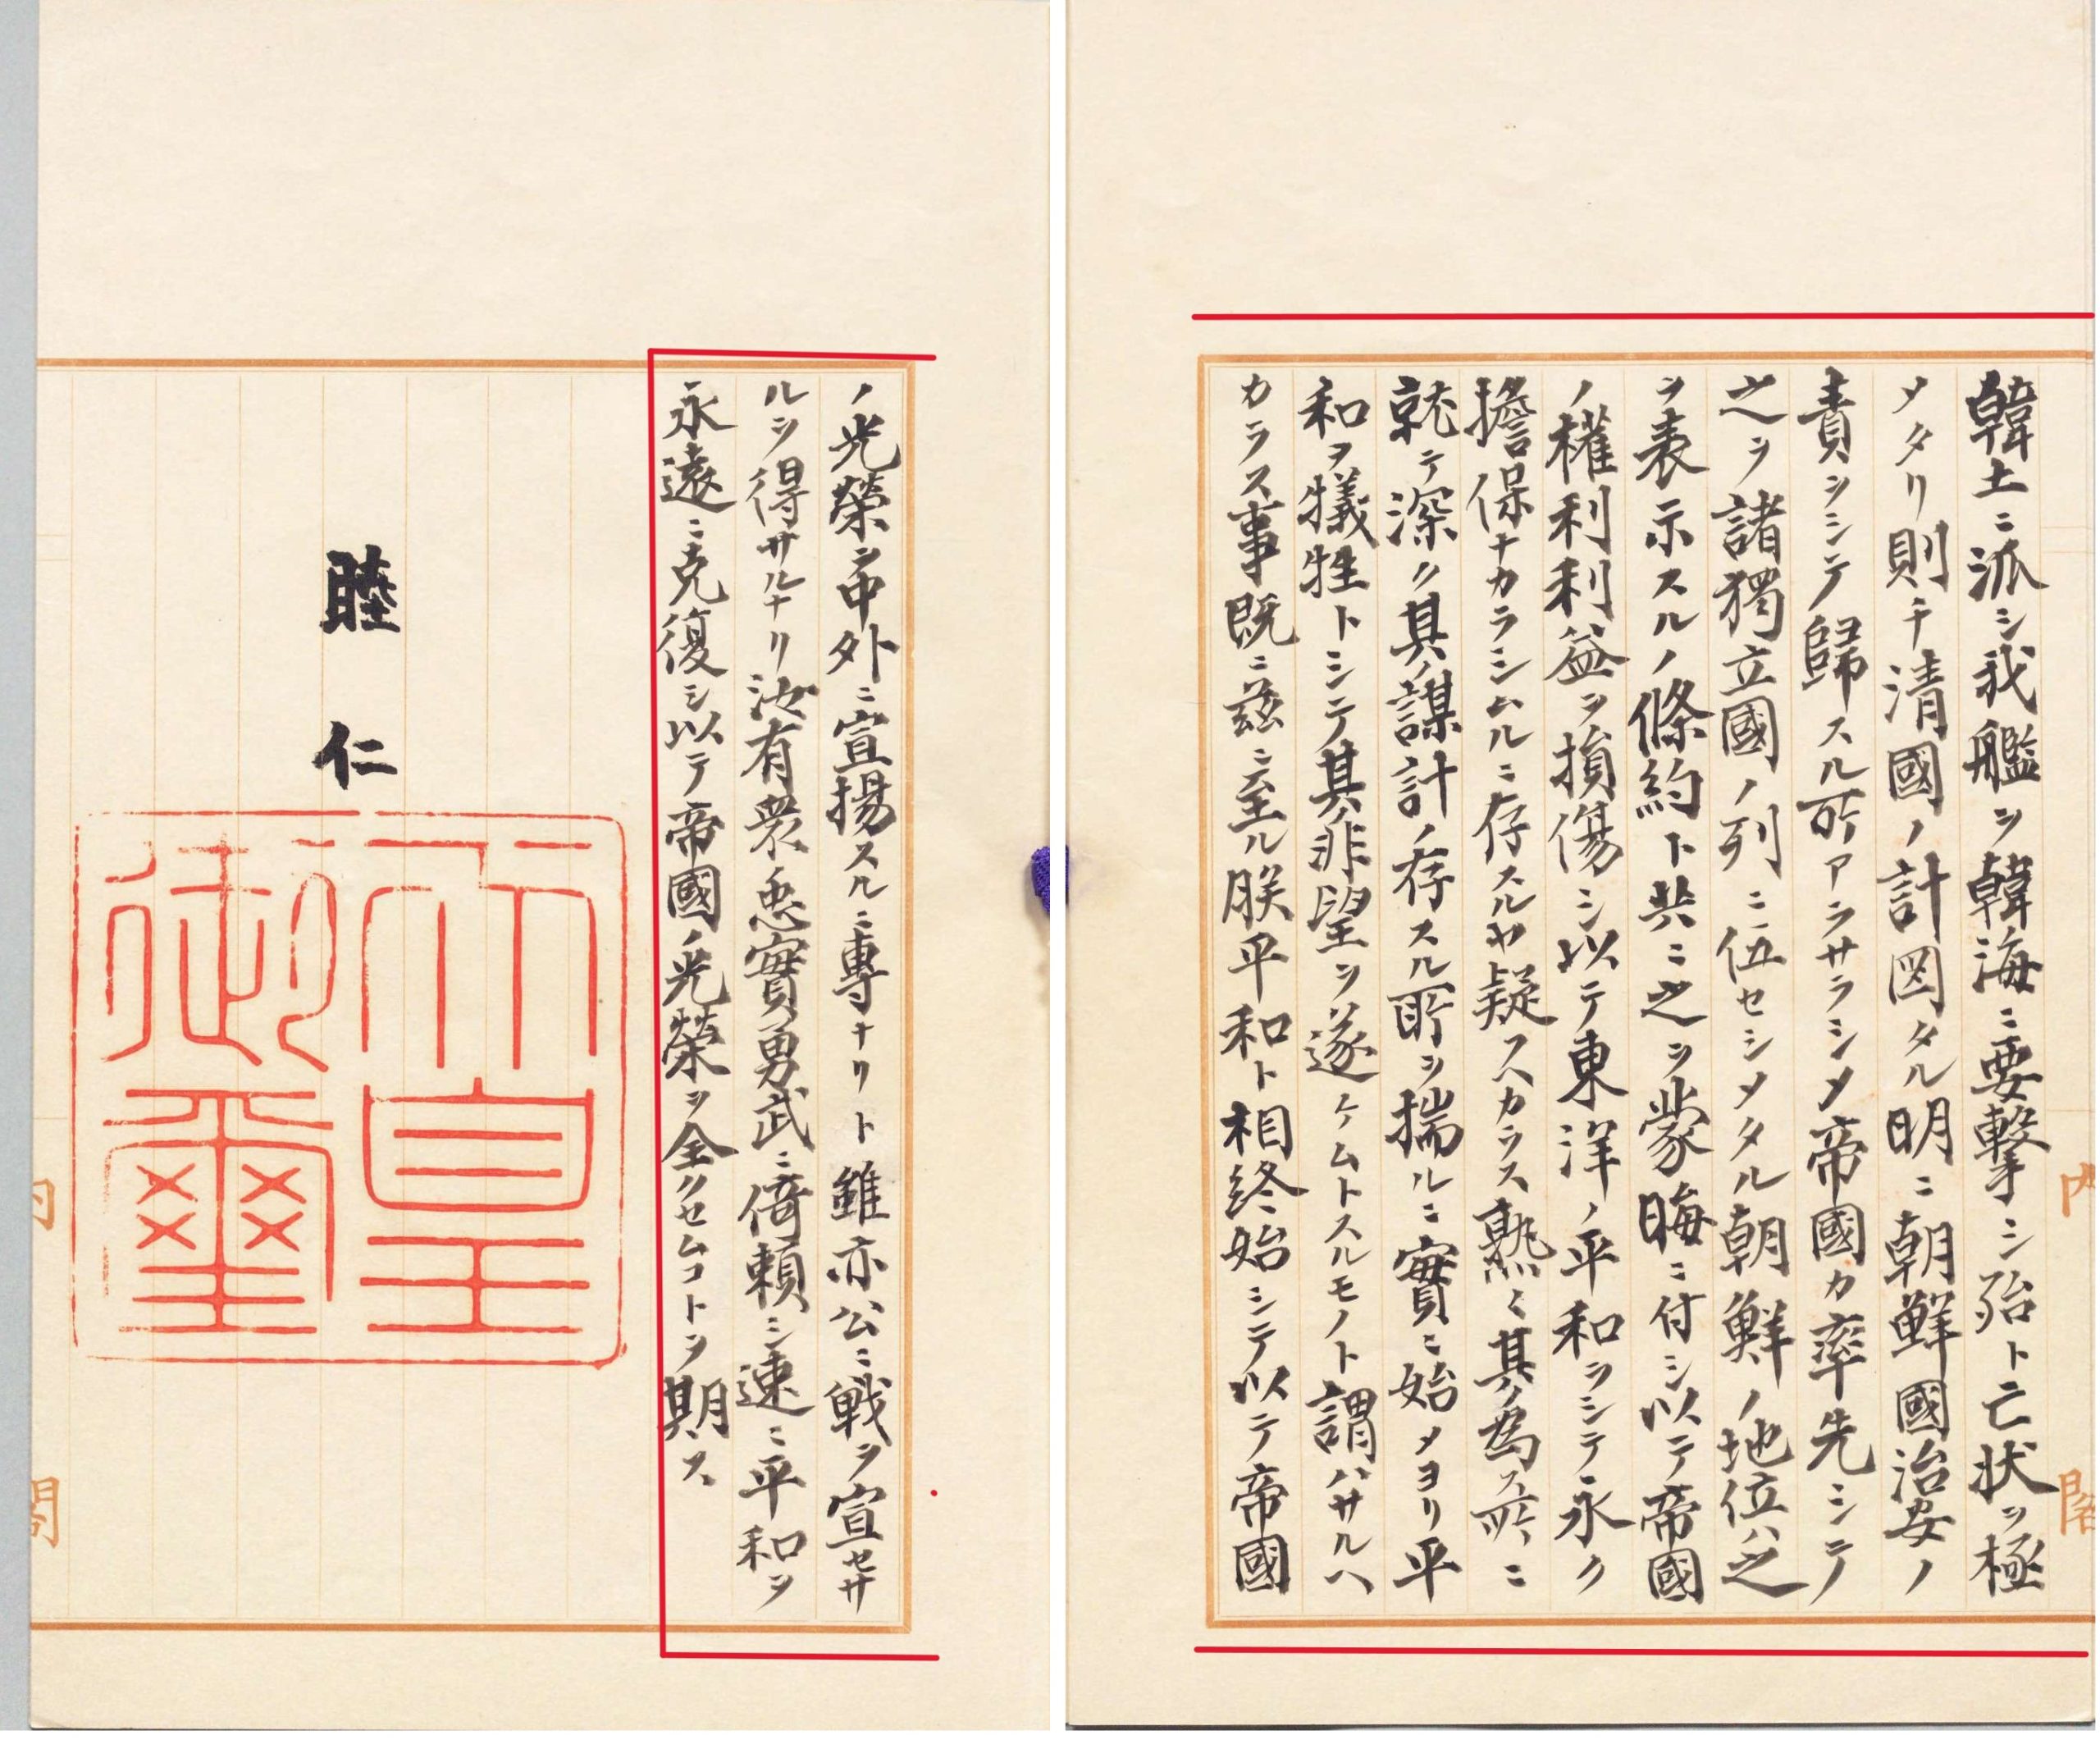 韓土ニ派シ我艦ヲ韓海ニ要撃シ殆ト亡状ヲ極
メタリ則チ清國ノ計図タル明ニ朝鮮國治安ノ
責ヲシテ歸スル所アラサラシメ帝國カ率先シテ
之ヲ諸獨立國ノ列ニ伍セシメタル朝鮮ノ地位ハ之
ヲ表示スルノ條約ト共ニ之ヲ蒙晦ニ付シ以テ帝國
ノ權利利益ヲ損傷シ以テ東洋ノ平和ヲシテ永ク
擔保ナカラシムルニ存スルヤ疑フヘカラス熟々其ノ為ス所ニ
就テ深ク其ノ謀計ノ存スル所ヲ揣ルニ實ニ始メヨリ平
和ヲ犠牲トシテ其ノ非望ヲ遂ケムトスルモノト謂ハサルヘ
カラス事既ニ茲ニ至ル朕平和ト相終始シテ以テ帝國
ノ光榮ヲ中外ニ宣揚スルニ專ナリト雖亦公ニ戦ヲ宣セサ
ルヲ得サルナリ汝有衆ノ忠實勇武ニ倚頼シ速ニ平和ヲ
永遠ニ克復シ以テ帝國ノ光榮ヲ全クセムコトヲ期ス
睦仁
天皇
御璽
内
閣
内
閣